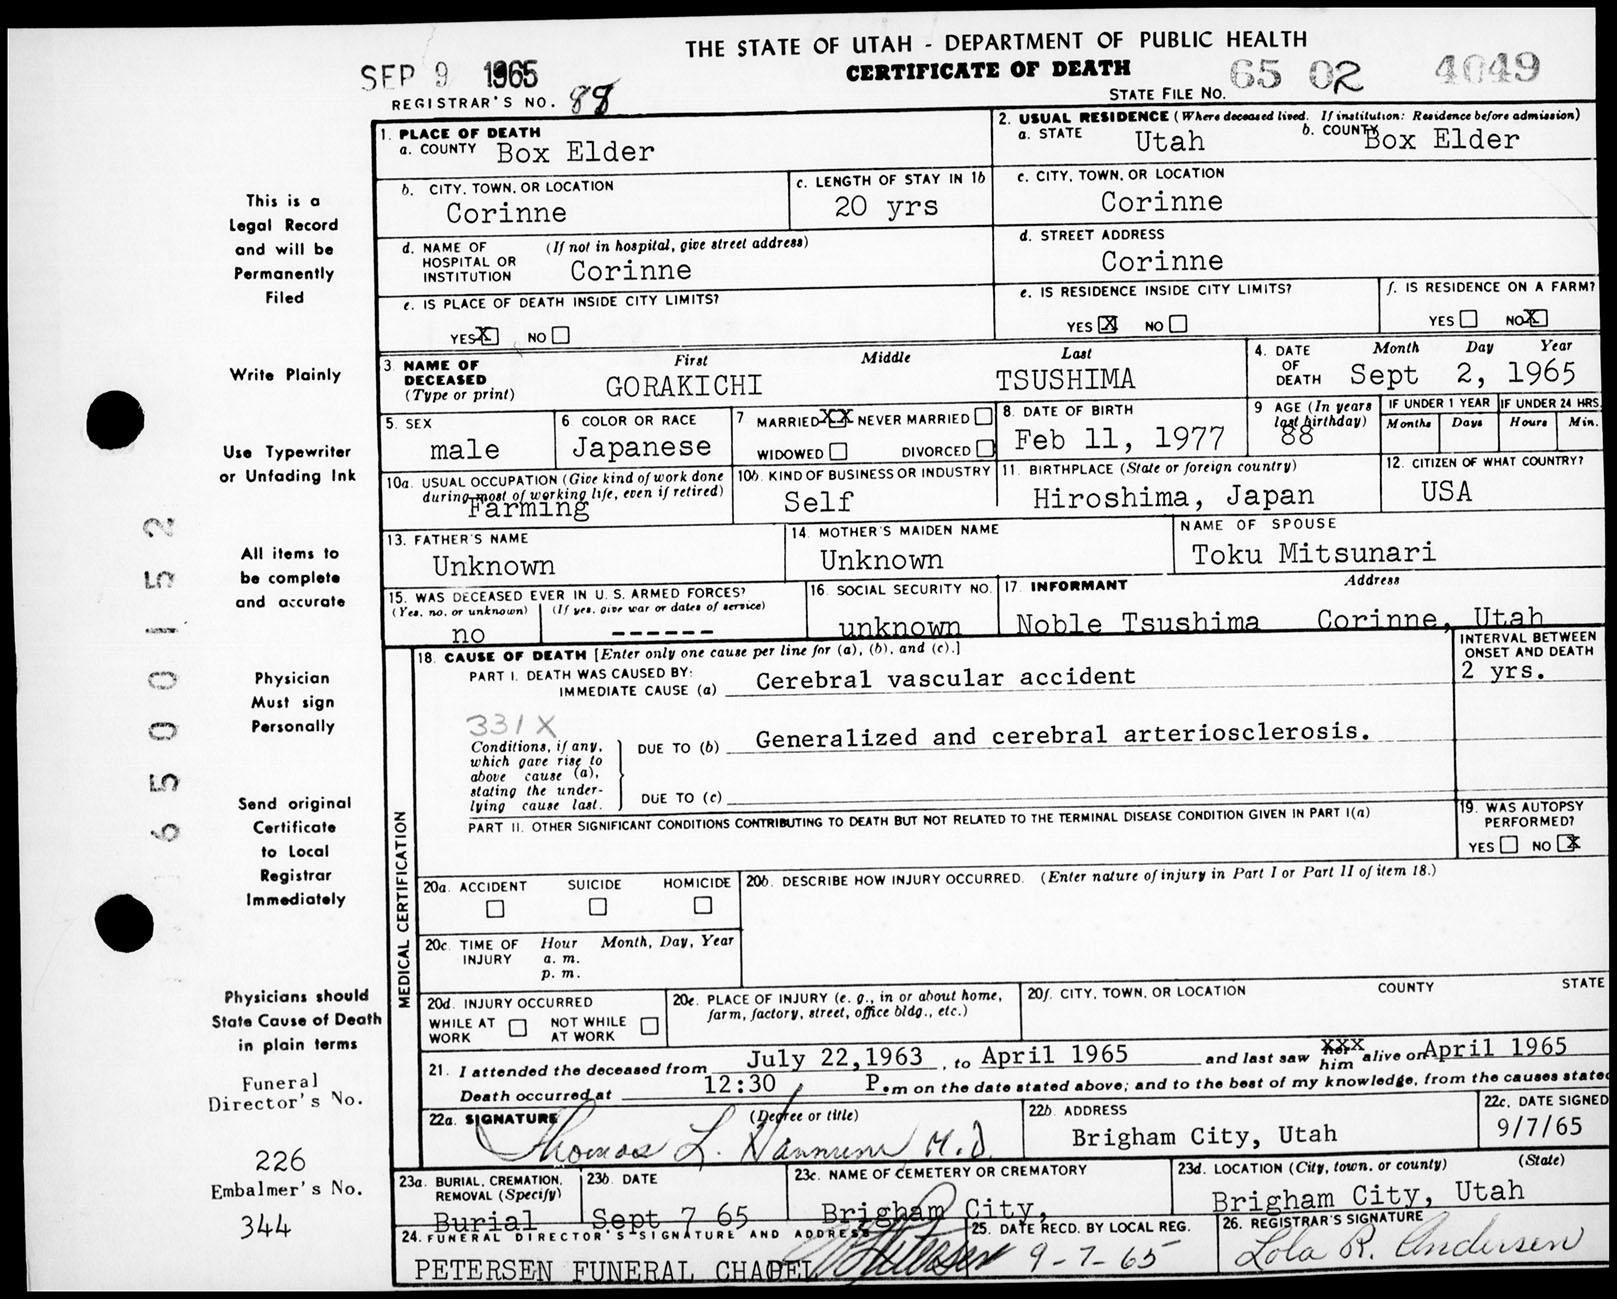 THE STATE OF UTAH - DEPARTMENT OF PUBLIC HEALTH
CERTIFICATE OF DEATH
SEP 9 1965
65 02 4049
STATE FILE NO.
REGISTRAR'S NO. 88
1. PLACE OF DEATH
a. COUNTY Box Elder
2. USUAL RESIDENCE (Where deceased lived. If institution: Residence before admission)
a. STATE Utah b. COUNTY Box Elder
b. CITY, TOWN, OR LOCATION Corinne
c. LENGTH OF STAY IN 1b 20 yrs
c. CITY, TOWN, OR LOCATION Corinne
d. NAME OF HOSPITAL OR INSTITUTION (If not in hospital, give street address) Corinne
d. STREET ADDRESS Corinne
e. IS PLACE OF DEATH INSIDE CITY LIMITS?
YES X NO
e. IS RESIDENCE INSIDE CITY LIMITS?
YES X NO
f. IS RESIDENCE ON A FARM?
YES NO X
3. NAME OF DECEASED (Type or print)
First Middle Last
GORAKICHI TSUSHIMA
4. DATE OF DEATH Month Day Year
Sept 2, 1965
5. SEX male
6 COLOR OR RACE Japanese
7 MARRIED XX NEVER MARRIED
WIDOWED DIVORCED
8. DATE OF BIRTH Feb 11, 1977
9 AGE (In years last birthday) 88
IF UNDER 1 YEAR Months Days
IF UNDER 24 HRS. Hours Min.
10a. USUAL OCCUPATION (Give kind of work done during most of working life, even if retired) Farming
10b. KIND OF BUSINESS OR INDUSTRY Self
11. BIRTHPLACE (State or foreign country) Hiroshima, Japan
12. CITIZEN OF WHAT COUNTRY? USA
13. FATHER'S NAME Unknown
14. MOTHER'S MAIDEN NAME Unknown
NAME OF SPOUSE Toku Mitsunari
15. WAS DECEASED EVER IN U. S. ARMED FORCES?
(Yes, no, or unknown) (If yes, give war or dates of service)
no ------
16. SOCIAL SECURITY NO. unknown
17. INFORMANT Address
Noble Tsushima Corinne, Utah
MEDICAL CERTIFICATION
18. CAUSE OF DEATH [Enter only one cause per line for (a), (b), and (c).]
INTERVAL BETWEEN ONSET AND DEATH
PART I. DEATH WAS CAUSED BY:
IMMEDIATE CAUSE (a) Cerebral vascular accident 2 yrs.
331X
Conditions, if any, which gave rise to above cause (a), stating the underlying cause last.
DUE TO (b) Generalized and cerebral arteriosclerosis.
DUE TO (c)
PART II. OTHER SIGNIFICANT CONDITIONS CONTRIBUTING TO DEATH BUT NOT RELATED TO THE TERMINAL DISEASE CONDITION GIVEN IN PART I(a)
19. WAS AUTOPSY PERFORMED?
YES NO X
20a. ACCIDENT SUICIDE HOMICIDE
20b. DESCRIBE HOW INJURY OCCURRED. (Enter nature of injury in Part I or Part II of item 18.)
20c. TIME OF INJURY Hour Month, Day, Year
a. m.
p. m.
20d. INJURY OCCURRED
WHILE AT WORK NOT WHILE AT WORK
20e. PLACE OF INJURY (e. g., in or about home, farm, factory, street, office bldg., etc.)
20f. CITY, TOWN, OR LOCATION COUNTY STATE
21. I attended the deceased from July 22,1963, to April 1965 and last saw her XXX him alive on April 1965
Death occurred at 12:30 P.m on the date stated above; and to the best of my knowledge, from the causes stated
22a. SIGNATURE (Degree or title)
Thomas L. M.D.
22b. ADDRESS Brigham City, Utah
22c. DATE SIGNED 9/7/65
23a. BURIAL, CREMATION, REMOVAL (Specify) Burial
23b. DATE Sept 7 65
23c. NAME OF CEMETERY OR CREMATORY Brigham City,
23d. LOCATION (City, town, or county) (State)
Brigham City, Utah
24. FUNERAL DIRECTOR'S SIGNATURE AND ADDRESS
PETERSEN FUNERAL CHAPEL
25. DATE RECD. BY LOCAL REG. 9-7-65
26. REGISTRAR'S SIGNATURE
Lola R. Andersen
This is a
Legal Record
and will be
Permanently
Filed
Write Plainly
Use Typewriter
or Unfading Ink
All items to
be complete
and accurate
Physician
Must sign
Personally
Send original
Certificate
to Local
Registrar
Immediately
Physicians should
State Cause of Death
in plain terms
Funeral
Director's No.
226
Embalmer's No.
344
65500152